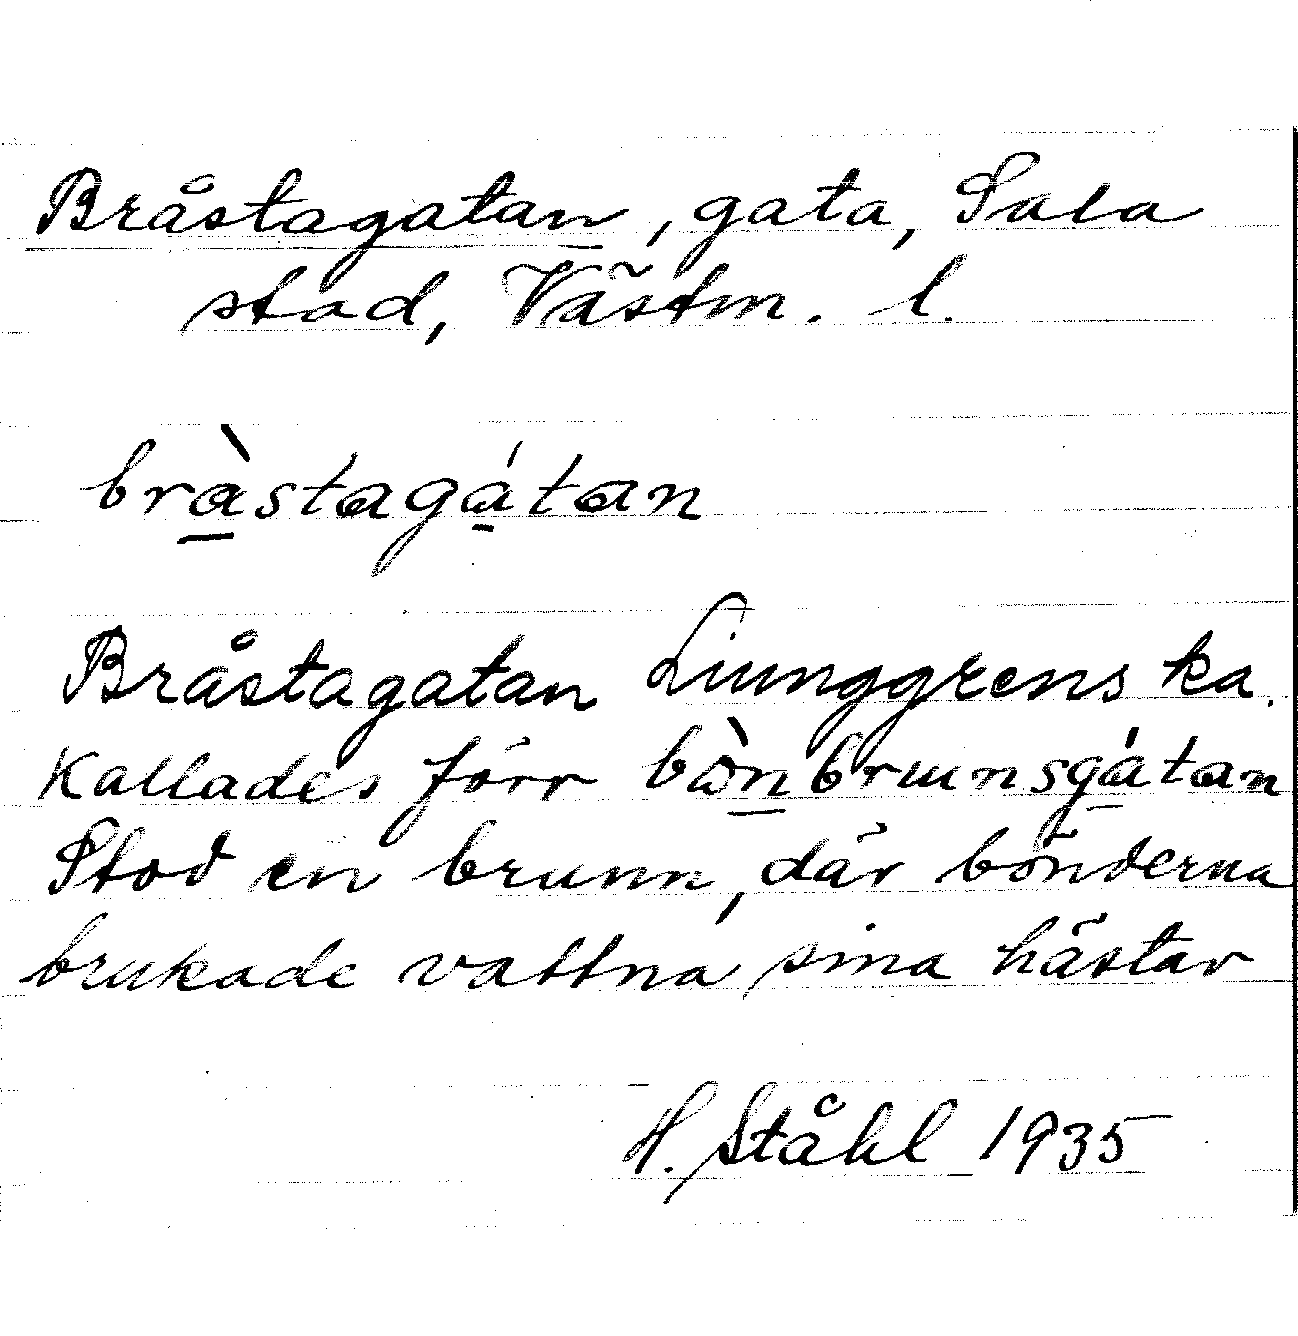 Bråstagatan, gata, Sala
stad, Västm. l.
bràstagátan
Bråstagatan Liunggrens ka.
Kallades förr bònbrunsgátan
Stod en brunn, där bönderna
brukade vattna sina hästar
H. Ståhl 1935